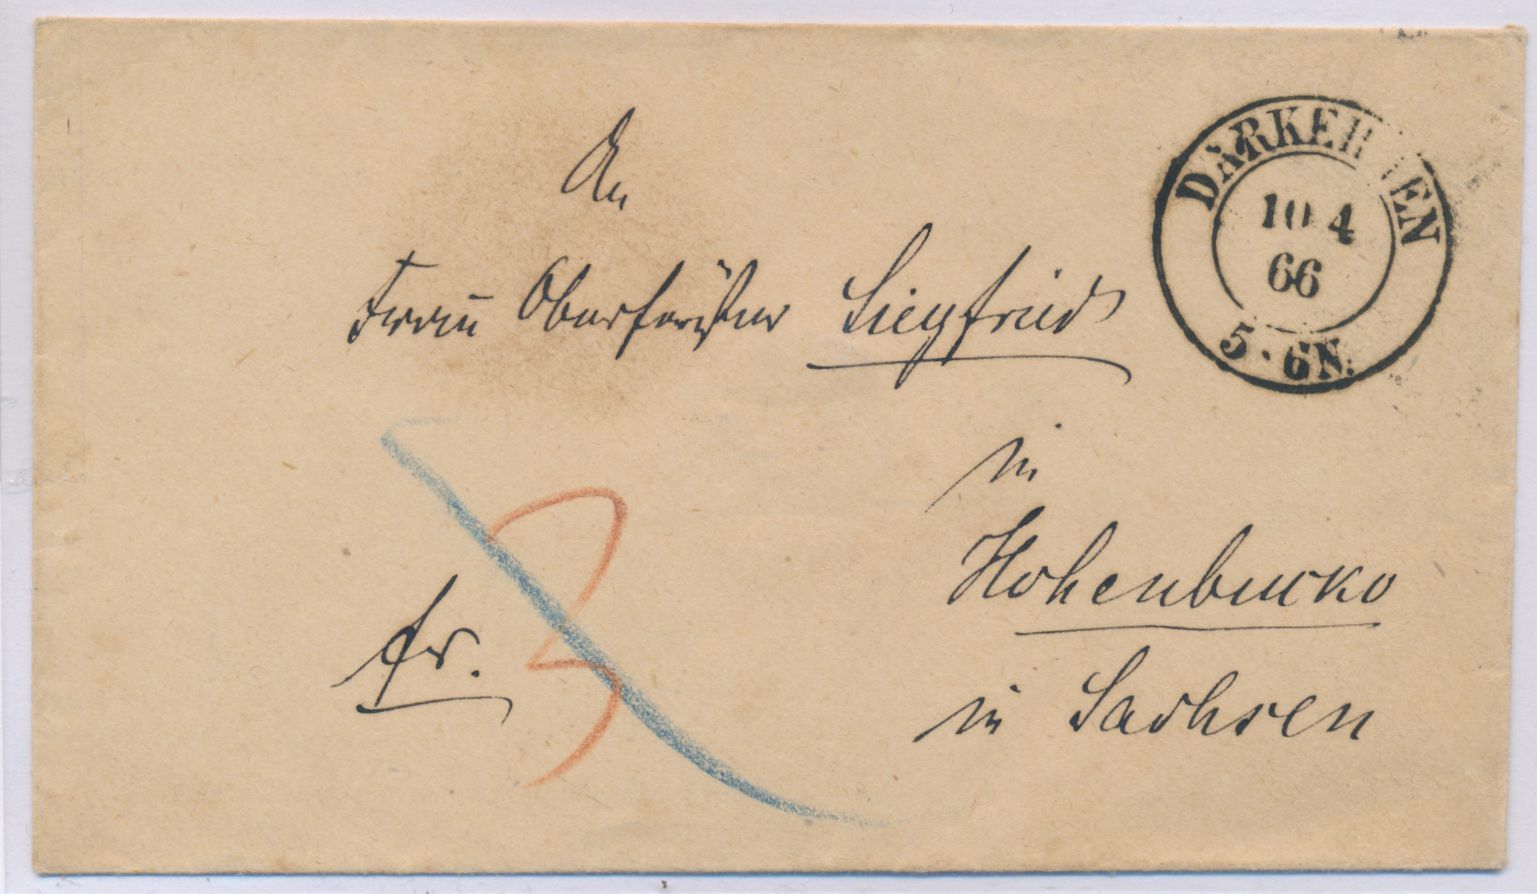 DARKEHMEN
10 4
66
5 · 6 N.
An
Frau Oberförster Siegfried
in
Hohenbucko
in Sachsen
fr.
3